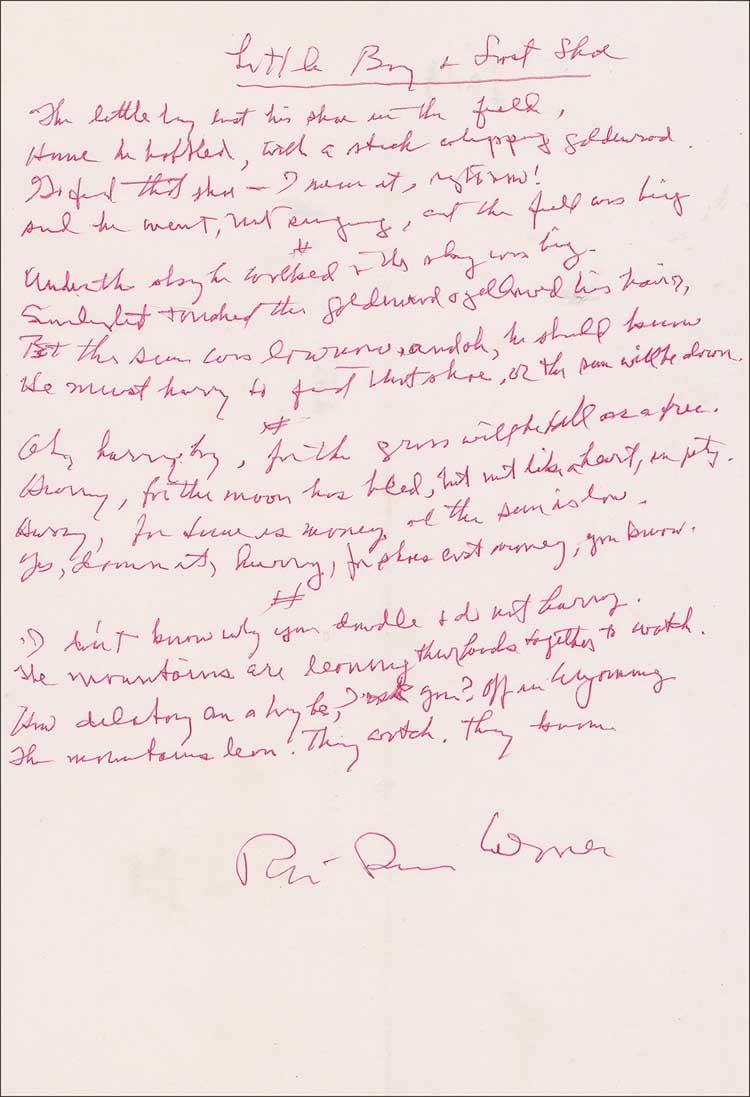 Little Boy & Lost Shoe
The little boy lost his shoe in the field,
Home he hobbled, with a stick whipping goldenrod.
Go find that shoe — I mean it, right now!
and he went, not singing, and the field was big
#
Under the sky he walked & the sky was big.
Sunlight touched the goldenrod & yellowed his hair,
But the sun was low now, and oh, he should know
He must hurry to find that shoe, or the sun will be down.
#
Oh, hurry, boy, for the grass will be tall as a tree.
Hurry, for the moon has bled, but not like a heart, in pity.
Hurry, for time is money & the sun is low.
Yes, damn it, hurry, for shoes cost money, you know.
#
I don't know why you dawdle & do not hurry.
The mountains are leaning their heads together to watch.
How dilatory can a boy be, I ask you? Off in Wyoming
The mountains lean. They watch. They know.
Robt Penn Warren